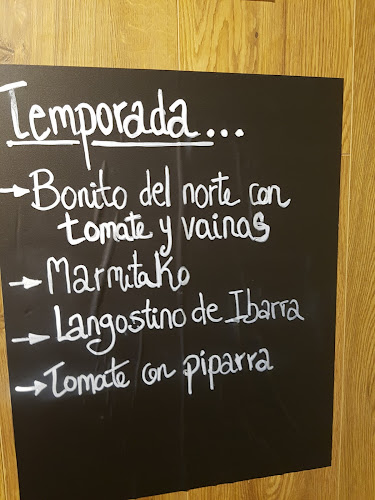 Temporada...
→Bonito del norte con
tomate y vainas
→Marmitako
→Langostino de Ibarra
→Tomate con piparra